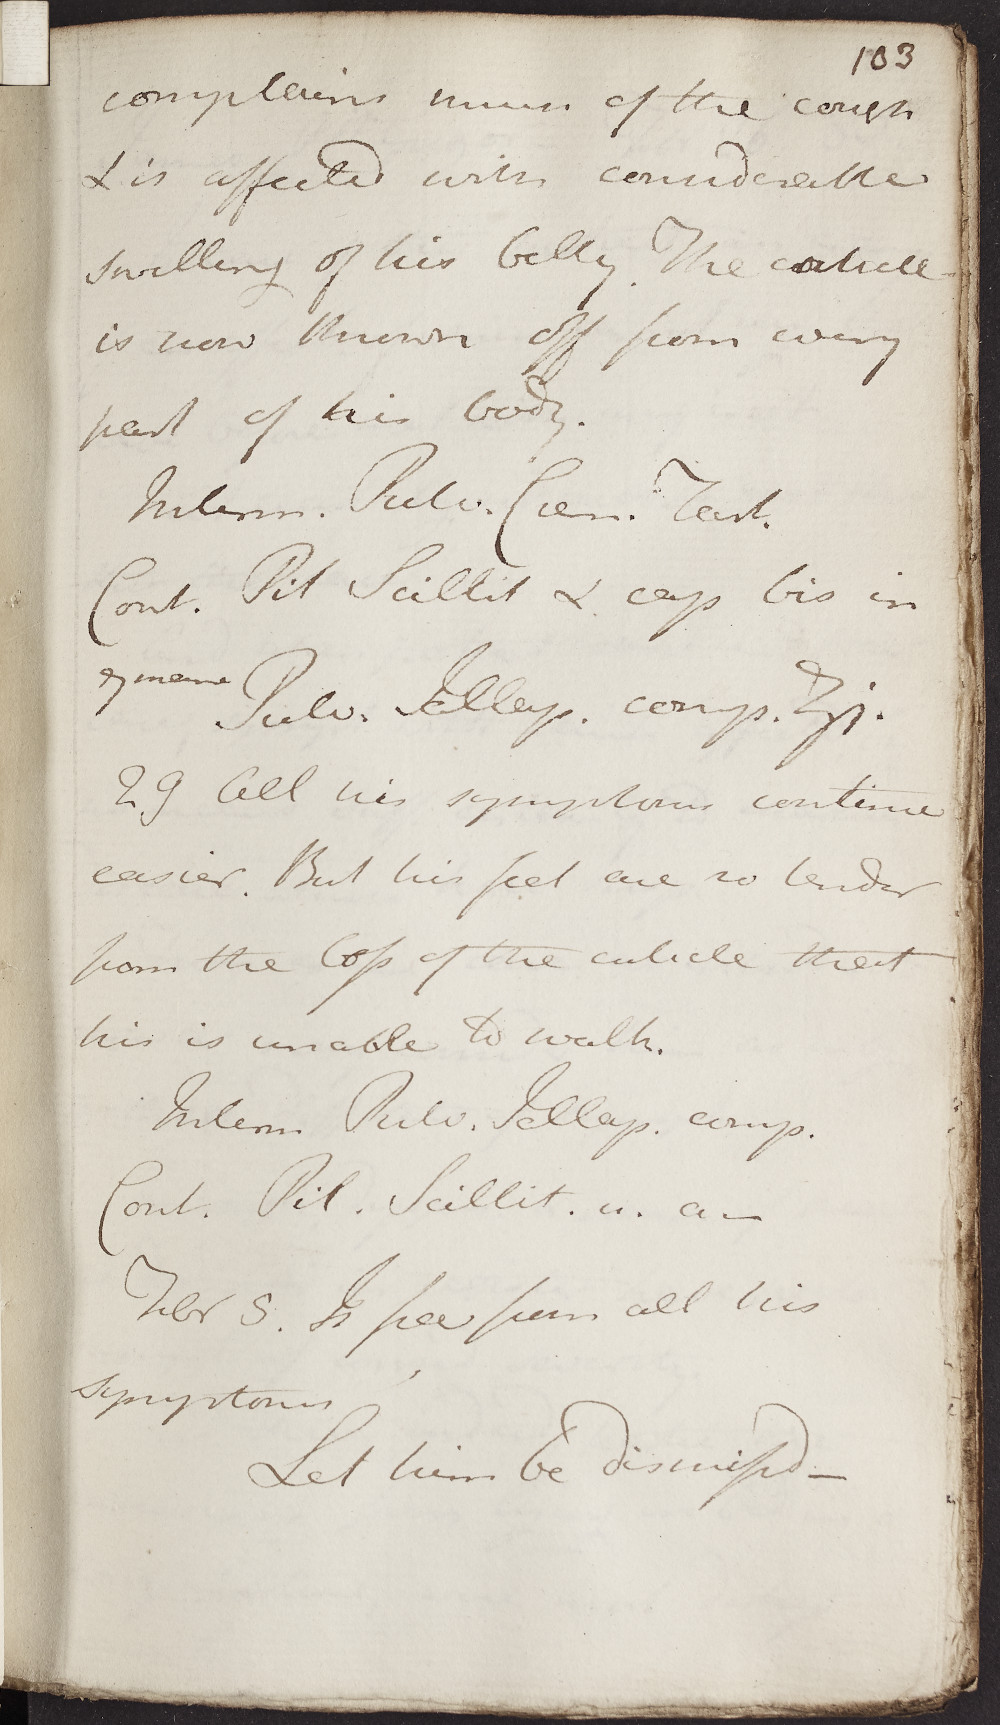 103
complains much of the cough
& is affected with considerable
swelling of his belly. The cuticle
is now thrown off from every
part of his body.
Interm. Pulv. Crem. Tart.
Cont. Pil Scillit & cap bis in
Pulv. Jallap. comp. ʒj.
29 All his symptoms continue
easier. But his feet are so tender
from the loss of the cuticle that
his is unable to walk.
Interm Pulv. Jallap. comp.
Cont. Pil. Scillit. u. a—
Febr 5. Is free from all his
symptoms
Let him be dismissd—